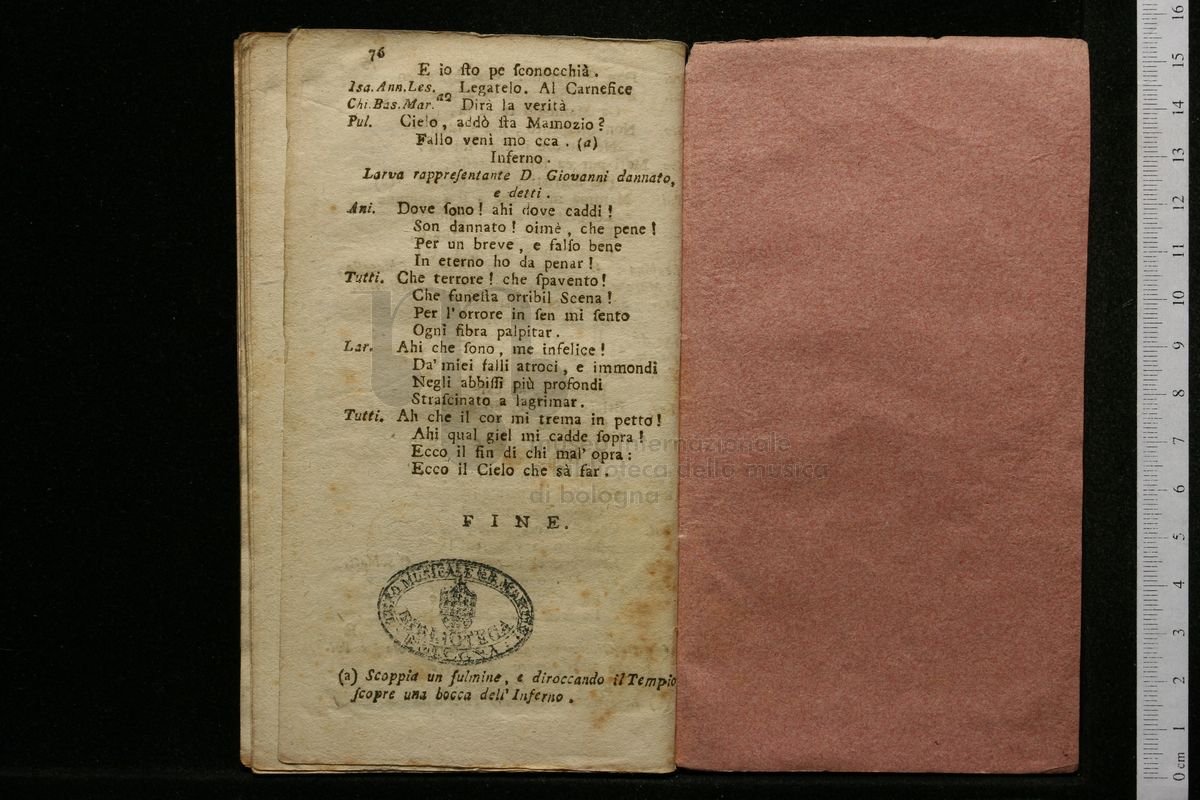 76
E io ſto pe ſconocchià.
Isa.Ann.Les. a2 Legatelo. Al Carnefice
Chi.Bas.Mar. Dirà la verità.
Pul. Cielo, addò ſta Mamozio?
Fallo venì mo cca. (a)
Inferno.
Larva rappreſentante D. Giovanni dannato,
e detti.
Ani. Dove ſono! ahi dove caddi!
Son dannato! oimè, che pene!
Per un breve, e falſo bene
In eterno ho da penar!
Tutti. Che terrore! che ſpavento!
Che funeſta orribil Scena!
Per l'orrore in ſen mi ſento
Ogni fibra palpitar.
Lar. Ahi che ſono, me infelice!
Da' miei falli atroci, e immondi
Negli abbiſſi più profondi
Straſcinato a lagrimar.
Tutti. Ah che il cor mi trema in petto!
Ahi qual giel mi cadde ſopra!
Ecco il fin di chi mal' opra:
Ecco il Cielo che sà far.
museo internazionale
e biblioteca della musica
di bologna
FINE.
LICEO MUSICALE G.B. MARTINI
BIBLIOTECA
BOLOGNA
(a) Scoppia un fulmine, e diroccando il Tempio
ſcopre una bocca dell' Inferno.
0 cm 1 2 3 4 5 6 7 8 9 10 11 12 13 14 15 16